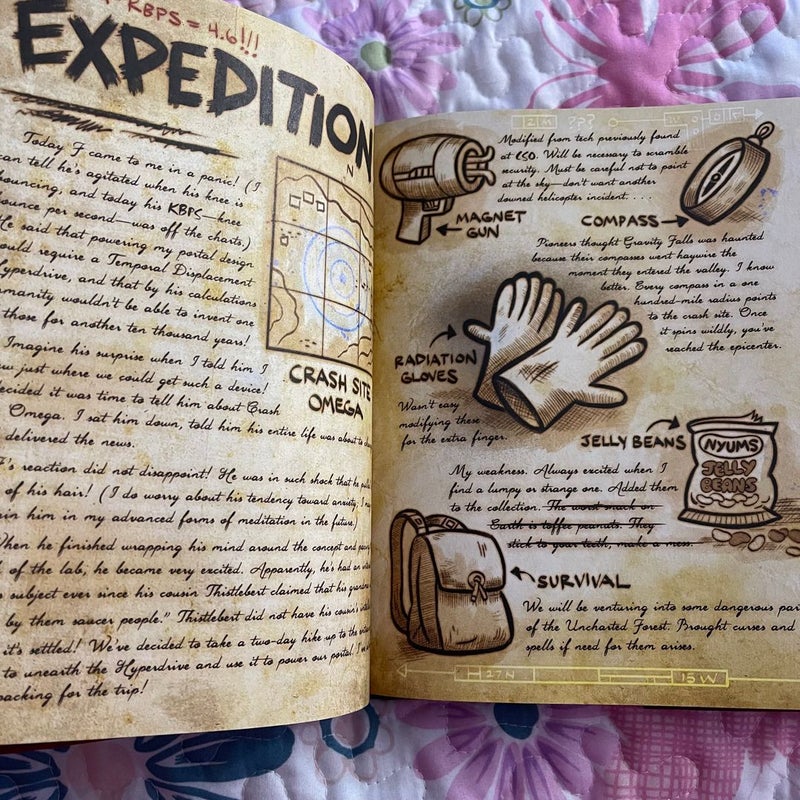 KBPS = 4.6!!!
EXPEDITION
Today F came to me in a panic! (I
can tell he's agitated when his knee is
bouncing, and today his KBPS—knee
bounce per second—was off the charts.)
He said that powering my portal design
would require a Temporal Displacement
Hyperdrive, and that by his calculations
humanity wouldn't be able to invent one
those for another ten thousand years!
Imagine his surprise when I told him I
just where we could get such a device!
decided it was time to tell him about Crash
Omega. I sat him down, told him his entire life was about to
delivered the news.
F's reaction did not disappoint! He was in such shock that he
of his hair! (I do worry about his tendency toward anxiety; I
him in my advanced forms of meditation in the future.)
When he finished wrapping his mind around the concept and
of the lab, he became very excited. Apparently, he's had an
subject ever since his cousin Thistlebert claimed that his
by them saucer people." Thistlebert did not have his cousin's
it's settled! We've decided to take a two-day hike up to the
to unearth the Hyperdrive and use it to power our portal. I
packing for the trip!
N
CRASH SITE
OMEGA
Modified from tech previously found
at CSO. Will be necessary to scramble
security. Must be careful not to point
at the sky—don't want another
downed helicopter incident. . . .
MAGNET
GUN
COMPASS
Pioneers thought Gravity Falls was haunted
because their compasses went haywire the
moment they entered the valley. I know
better. Every compass in a one
hundred-mile radius points
to the crash site. Once
it spins wildly, you've
reached the epicenter.
RADIATION
GLOVES
Wasn't easy
modifying these
for the extra finger.
JELLY BEANS
NYUMS
JELLY
BEANS
My weakness. Always excited when I
find a lumpy or strange one. Added them
to the collection. The worst snack on
Earth is toffee peanuts. They
stick to your teeth, make a mess.
SURVIVAL
We will be venturing into some dangerous
of the Uncharted Forest. Brought curses and
spells if need for them arises.
27N
15W